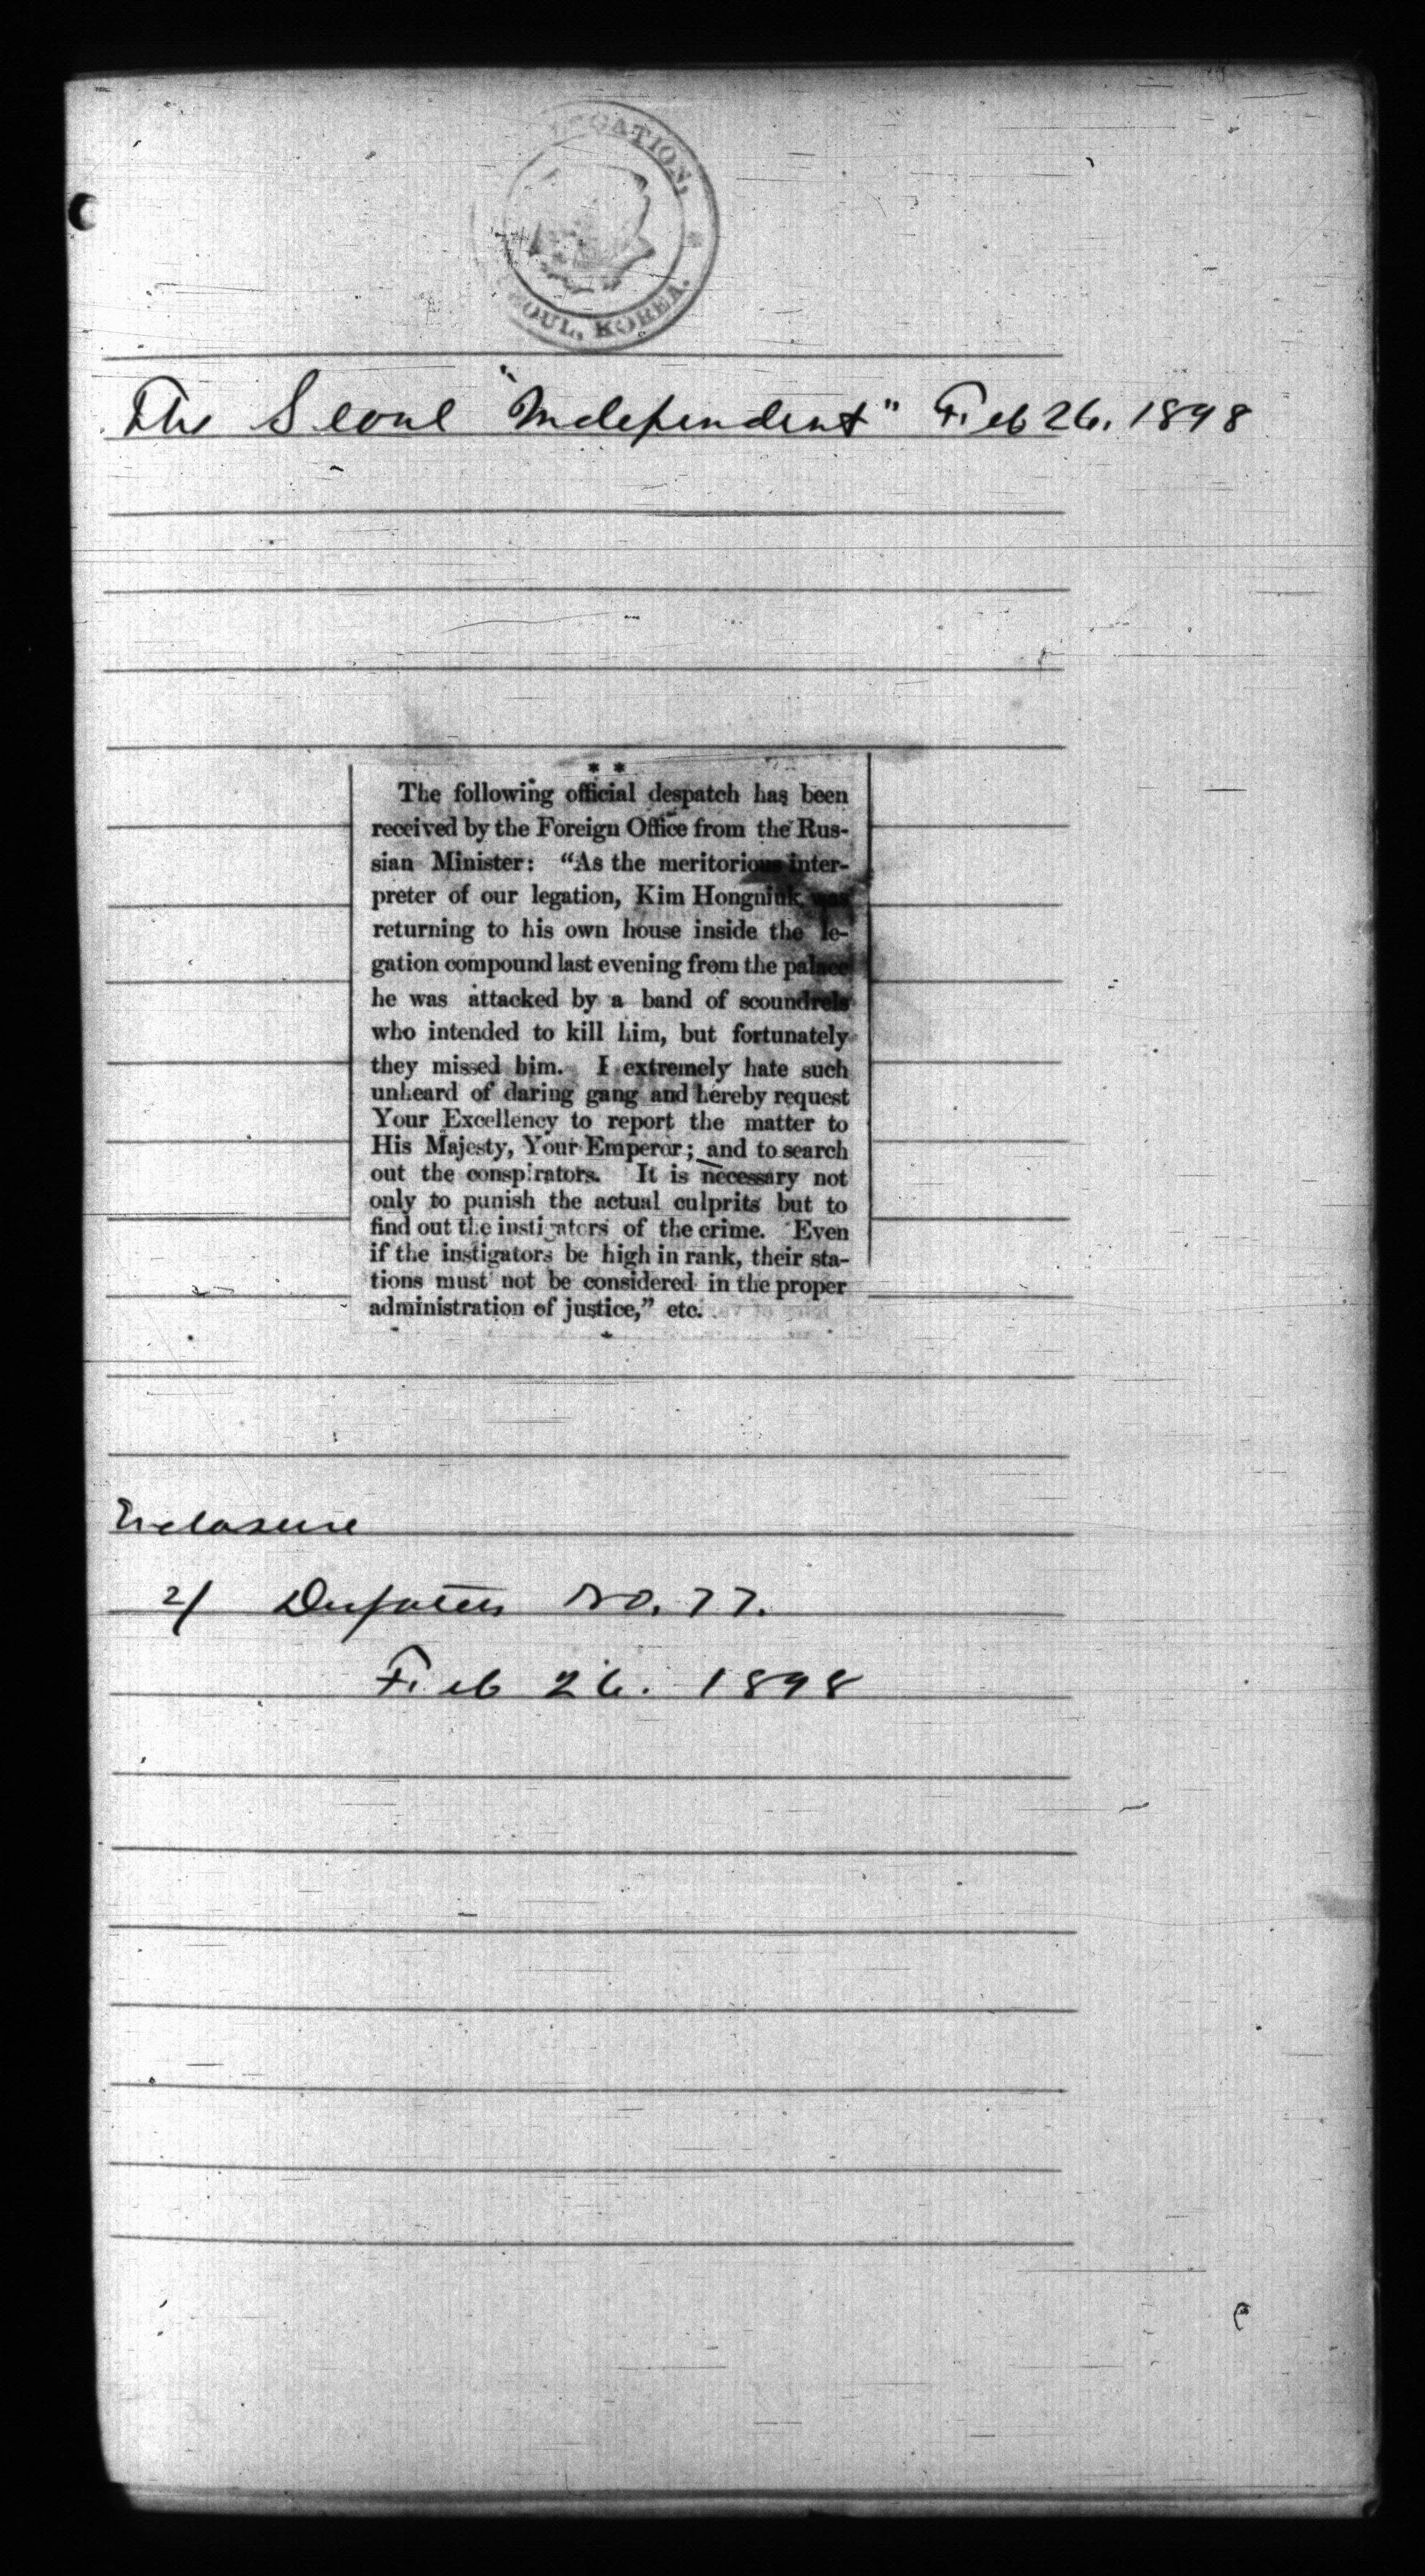 LEGATION,
SEOUL, KOREA.
The Seoul "Independent" Feb 26. 1898
* *
The following official despatch has been
received by the Foreign Office from the Rus-
sian Minister: "As the meritorious inter-
preter of our legation, Kim Hongniuk was
returning to his own house inside the le-
gation compound last evening from the palace
he was attacked by a band of scoundrels
who intended to kill him, but fortunately
they missed him. I extremely hate such
unheard of daring gang and hereby request
Your Excellency to report the matter to
His Majesty, Your Emperor; and to search
out the conspirators. It is necessary not
only to punish the actual culprits but to
find out the instigators of the crime. Even
if the instigators be high in rank, their sta-
tions must not be considered in the proper
administration of justice," etc.
Enclosure
2/ Despatch No. 77.
Feb 26. 1898